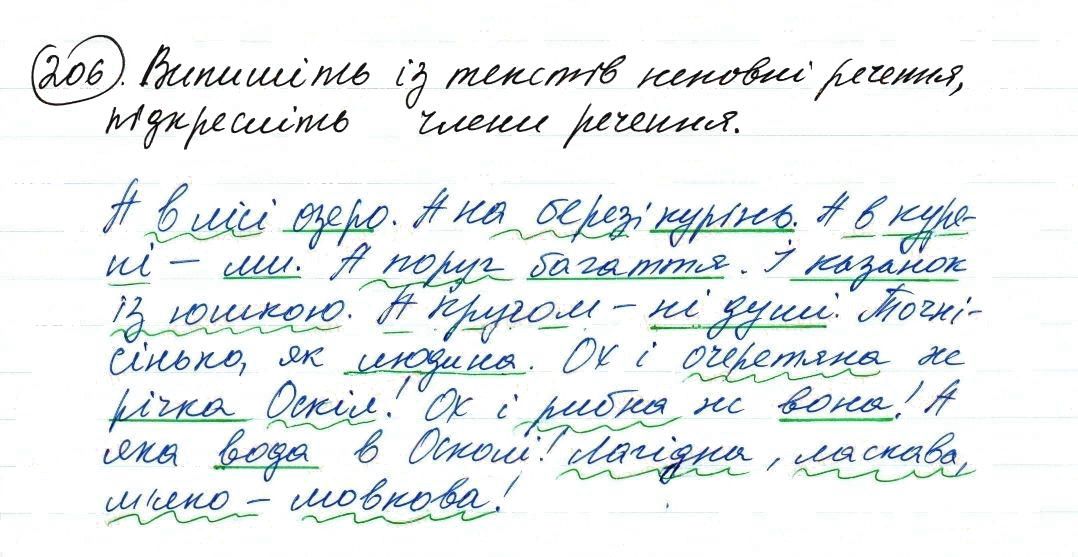 206. Випишіть із текстів неповні речення,
підкресліть члени речення.
А в лісі озеро. А на березі курінь. А в куре-
ні – ми. А поруч багаття. І казанок
із юшкою. А кругом – ні душі. Точні-
сінько, як людина. Ох і очеретяна ж
річка Оскіл! Ох і рибна ж вона! А
яка вода в Осколі! Лагідна, ласкава,
м'яко – шовкова!